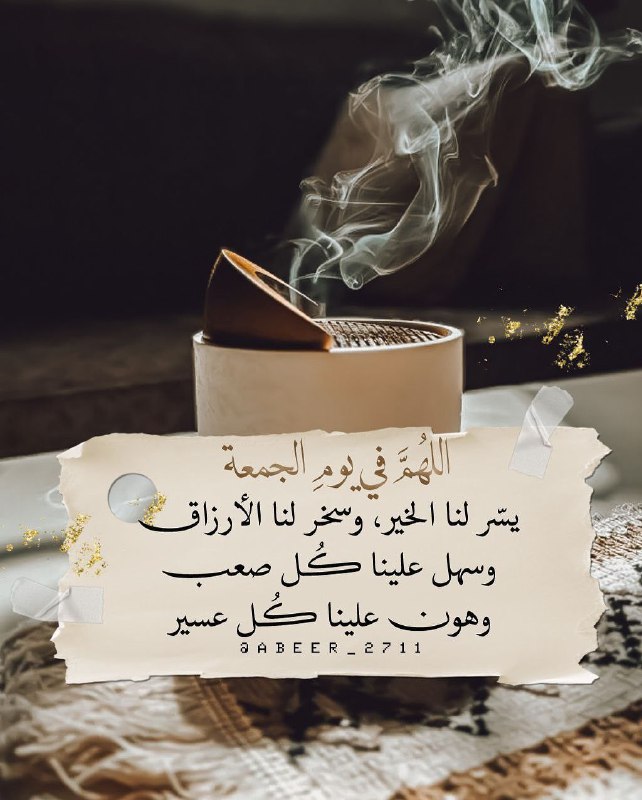 اللهُمَّ في يومِ الجمعة
يسّر لنا الخير، وسخر لنا الأرزاق
وسهل علينا كُل صعب
وهون علينا كُل عسير
@ABEER_2711